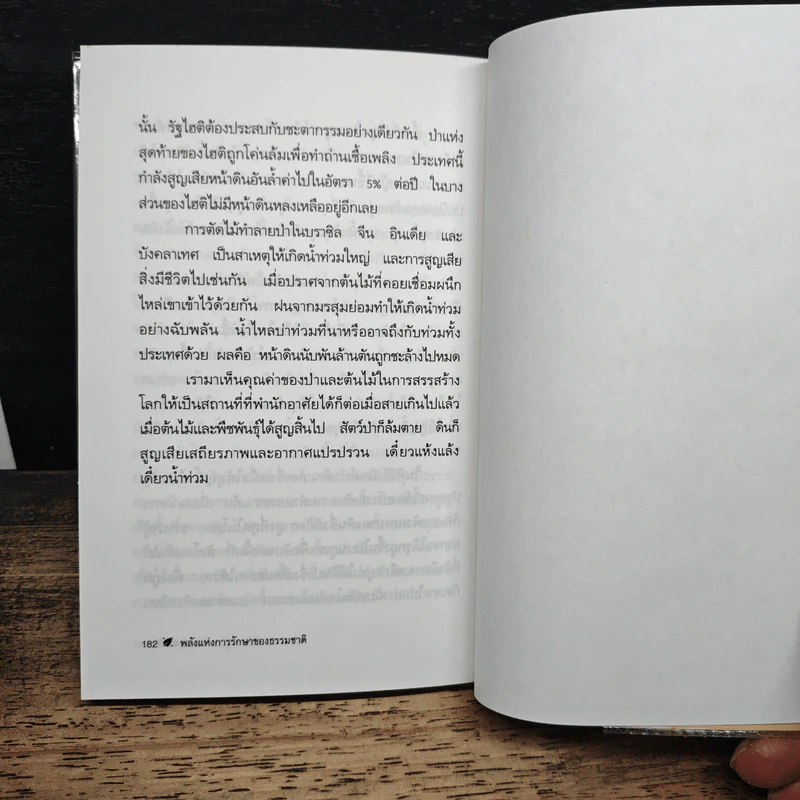 นั้น รัฐไฮติต้องประสบกับชะตากรรมอย่างเดียวกัน ป่าแห่ง
สุดท้ายของไฮติถูกโค่นล้มเพื่อทำถ่านเชื้อเพลิง ประเทศนี้
กำลังสูญเสียหน้าดินอันล้ำค่าไปในอัตรา 5% ต่อปี ในบาง
ส่วนของไฮติไม่มีหน้าดินหลงเหลืออยู่อีกเลย
การตัดไม้ทำลายป่าในบราซิล จีน อินเดีย และ
บังคลาเทศ เป็นสาเหตุให้เกิดน้ำท่วมใหญ่ และการสูญเสีย
สิ่งมีชีวิตไปเช่นกัน เมื่อปราศจากต้นไม้ที่คอยเชื่อมผนึก
ไหล่เขาเข้าไว้ด้วยกัน ฝนจากมรสุมย่อมทำให้เกิดน้ำท่วม
อย่างฉับพลัน น้ำไหลบ่าท่วมที่นาหรืออาจถึงกับท่วมทั้ง
ประเทศด้วย ผลคือ หน้าดินนับพันล้านตันถูกชะล้างไปหมด
เรามาเห็นคุณค่าของป่าและต้นไม้ในการสรรสร้าง
โลกให้เป็นสถานที่ที่พำนักอาศัยได้ก็ต่อเมื่อสายเกินไปแล้ว
เมื่อต้นไม้และพืชพันธุ์ได้สูญสิ้นไป สัตว์ป่าก็ล้มตาย ดินก็
สูญเสียเสถียรภาพและอากาศแปรปรวน เดี๋ยวแห้งแล้ง
เดี๋ยวน้ำท่วม
182 พลังแห่งการรักษาของธรรมชาติ